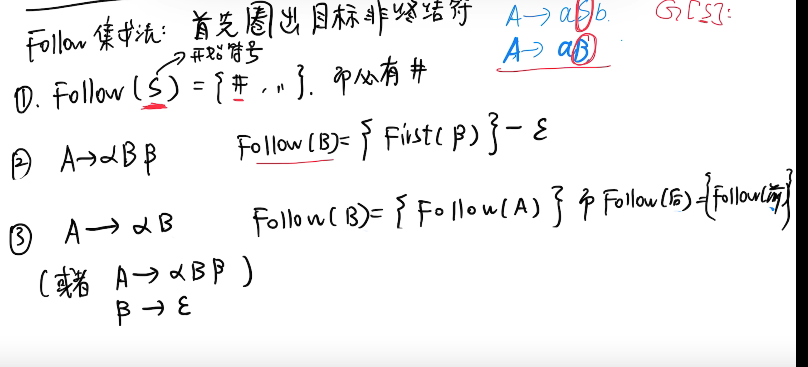 Follow 集求法: 首先圈出目标非终结符
A→aSb.
A→aB
G[S]:
开始符号
①. Follow(S)={#, ,,}. 即必有#
② A→αBβ Follow(B)={First(β)}-ε
③ A→αB Follow(B)={Follow(A)} 即 Follow(后)={Follow(前)}
(或者 A→αBβ)
β→ε